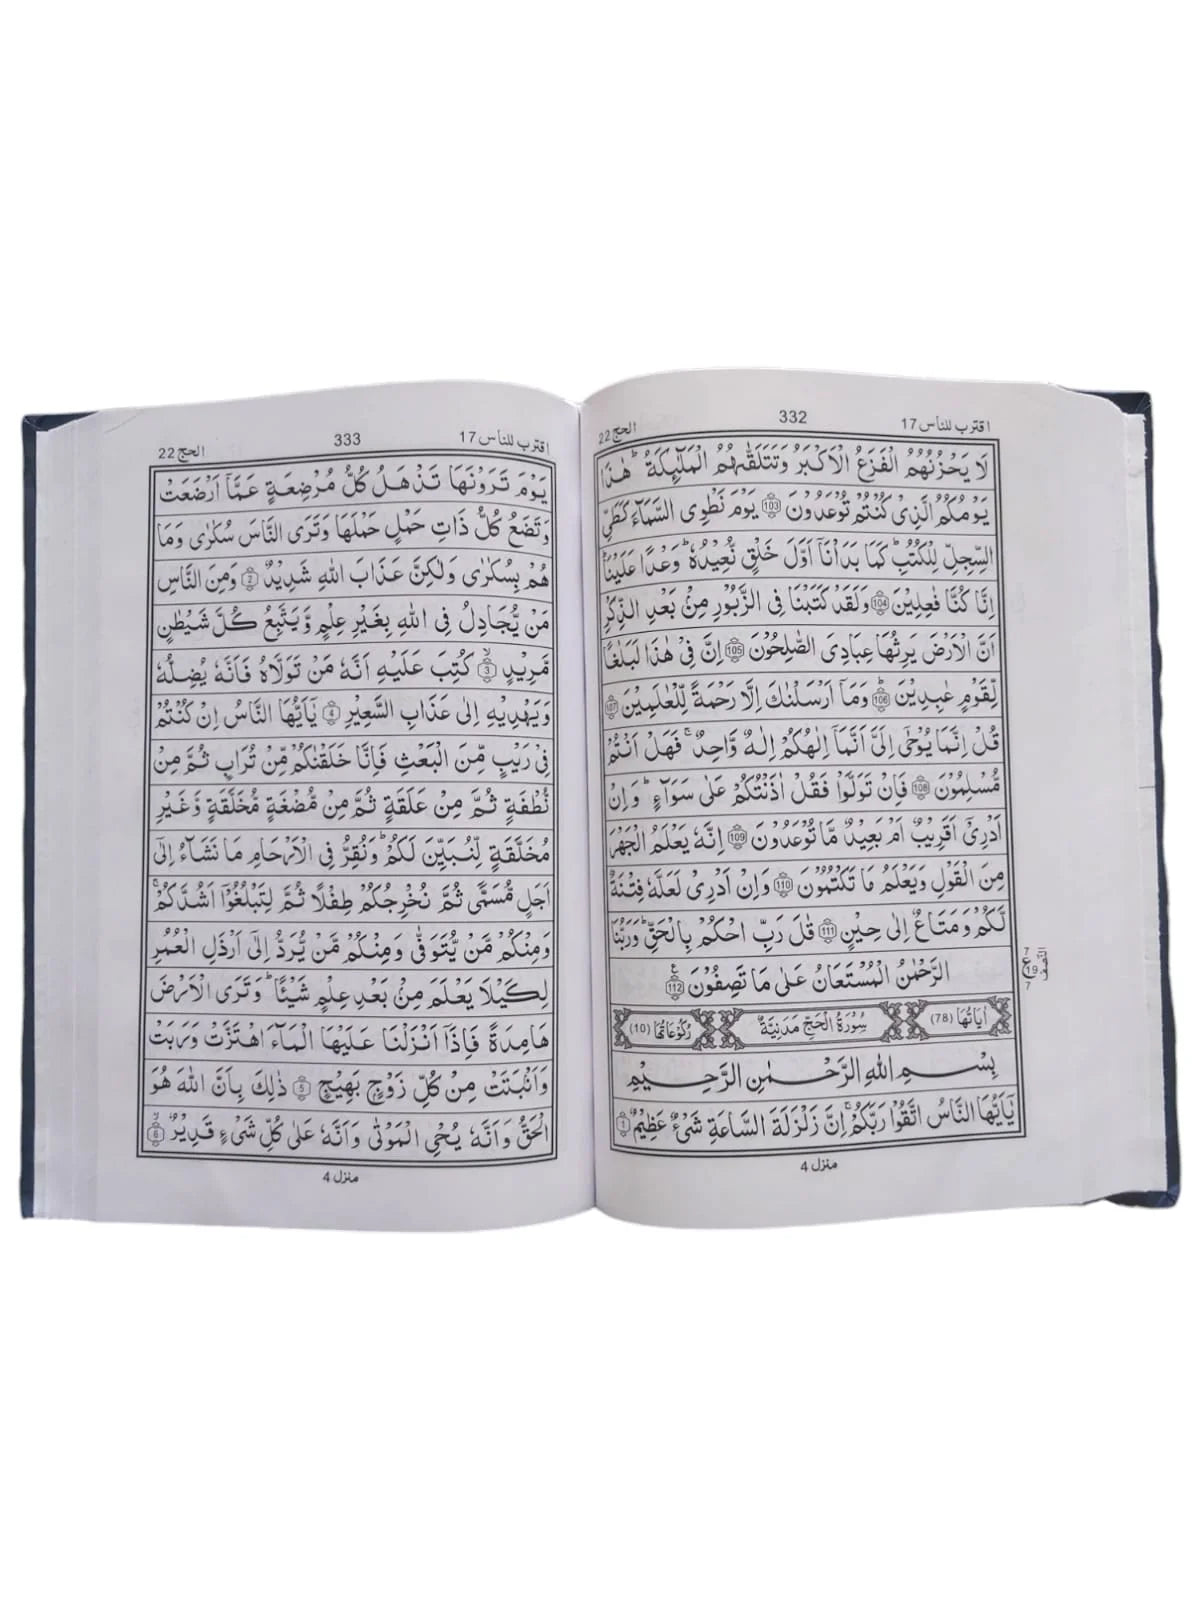 اقترب للناس 17
332
الحج 22
لَا يَحْزُنُهُمُ الْفَزَعُ الْاَكْبَرُ وَتَتَلَقّٰىهُمُ الْمَلٰٓئِكَةُ ؕ هٰذَا
يَوْمُكُمُ الَّذِىْ كُنْتُمْ تُوْعَدُوْنَ 103 يَوْمَ نَطْوِى السَّمَآءَ كَطَىِّ
السِّجِلِّ لِلْكُتُبِ ؕ كَمَا بَدَاْنَاۤ اَوَّلَ خَلْقٍ نُّعِيْدُهٗ ؕ وَعْدًا عَلَيْنَا ؕ
اِنَّا كُنَّا فٰعِلِيْنَ 104 وَلَقَدْ كَتَبْنَا فِى الزَّبُوْرِ مِنْۢ بَعْدِ الذِّكْرِ
اَنَّ الْاَرْضَ يَرِثُهَا عِبَادِىَ الصّٰلِحُوْنَ 105 اِنَّ فِىْ هٰذَا لَبَلٰغًا
لِّقَوْمٍ عٰبِدِيْنَ ؕ 106 وَمَاۤ اَرْسَلْنٰكَ اِلَّا رَحْمَةً لِّلْعٰلَمِيْنَ 107
قُلْ اِنَّمَا يُوْحٰۤى اِلَىَّ اَنَّمَاۤ اِلٰهُكُمْ اِلٰهٌ وَّاحِدٌ ۚ فَهَلْ اَنْتُمْ
مُّسْلِمُوْنَ 108 فَاِنْ تَوَلَّوْا فَقُلْ اٰذَنْتُكُمْ عَلٰى سَوَآءٍ ؕ وَاِنْ
اَدْرِىْۤ اَقَرِيْبٌ اَمْ بَعِيْدٌ مَّا تُوْعَدُوْنَ 109 اِنَّهٗ يَعْلَمُ الْجَهْرَ
مِنَ الْقَوْلِ وَيَعْلَمُ مَا تَكْتُمُوْنَ 110 وَاِنْ اَدْرِىْ لَعَلَّهٗ فِتْنَةٌ
لَّكُمْ وَمَتَاعٌ اِلٰى حِيْنٍ 111 قٰلَ رَبِّ احْكُمْ بِالْحَقِّ ؕ وَرَبُّنَا
الرَّحْمٰنُ الْمُسْتَعَانُ عَلٰى مَا تَصِفُوْنَ 112
7
ع
19
7
النصف
اٰيَاتُهَا (78)
سُوْرَةُ الْحَجِّ مَدَنِيَّةٌ
رُكُوْعَاتُهَا (10)
بِسْمِ اللهِ الرَّحْمٰنِ الرَّحِيْمِ
يٰۤاَيُّهَا النَّاسُ اتَّقُوْا رَبَّكُمْ ۚ اِنَّ زَلْزَلَةَ السَّاعَةِ شَىْءٌ عَظِيْمٌ 1
منزل 4
اقترب للناس 17
333
الحج 22
يَوْمَ تَرَوْنَهَا تَذْهَلُ كُلُّ مُرْضِعَةٍ عَمَّاۤ اَرْضَعَتْ
وَتَضَعُ كُلُّ ذَاتِ حَمْلٍ حَمْلَهَا وَتَرَى النَّاسَ سُكٰرٰى وَمَا
هُمْ بِسُكٰرٰى وَلٰكِنَّ عَذَابَ اللهِ شَدِيْدٌ 2 وَمِنَ النَّاسِ
مَنْ يُّجَادِلُ فِى اللهِ بِغَيْرِ عِلْمٍ وَّيَتَّبِعُ كُلَّ شَيْطٰنٍ
مَّرِيْدٍ ۙ 3 كُتِبَ عَلَيْهِ اَنَّهٗ مَنْ تَوَلَّاهُ فَاَنَّهٗ يُضِلُّهٗ
وَيَهْدِيْهِ اِلٰى عَذَابِ السَّعِيْرِ 4 يٰۤاَيُّهَا النَّاسُ اِنْ كُنْتُمْ
فِىْ رَيْبٍ مِّنَ الْبَعْثِ فَاِنَّا خَلَقْنٰكُمْ مِّنْ تُرَابٍ ثُمَّ مِنْ
نُّطْفَةٍ ثُمَّ مِنْ عَلَقَةٍ ثُمَّ مِنْ مُّضْغَةٍ مُّخَلَّقَةٍ وَّغَيْرِ
مُخَلَّقَةٍ لِّنُبَيِّنَ لَكُمْ ؕ وَنُقِرُّ فِى الْاَرْحَامِ مَا نَشَآءُ اِلٰۤى
اَجَلٍ مُّسَمًّى ثُمَّ نُخْرِجُكُمْ طِفْلًا ثُمَّ لِتَبْلُغُوْۤا اَشُدَّكُمْ ۚ
وَمِنْكُمْ مَّنْ يُّتَوَفّٰى وَمِنْكُمْ مَّنْ يُّرَدُّ اِلٰۤى اَرْذَلِ الْعُمُرِ
لِكَيْلَا يَعْلَمَ مِنْۢ بَعْدِ عِلْمٍ شَيْئًا ؕ وَتَرَى الْاَرْضَ
هَامِدَةً فَاِذَاۤ اَنْزَلْنَا عَلَيْهَا الْمَآءَ اهْتَزَّتْ وَرَبَتْ
وَاَنْۢبَتَتْ مِنْ كُلِّ زَوْجٍۢ بَهِيْجٍ 5 ذٰلِكَ بِاَنَّ اللهَ هُوَ
الْحَقُّ وَاَنَّهٗ يُحْىِ الْمَوْتٰى وَاَنَّهٗ عَلٰى كُلِّ شَىْءٍ قَدِيْرٌ ۙ 6
منزل 4